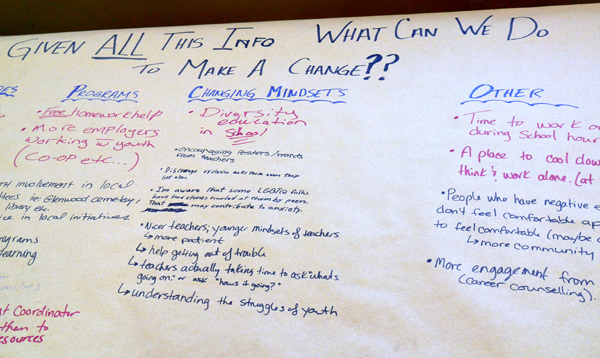 GIVEN ALL THIS INFO WHAT CAN WE DO
TO MAKE A CHANGE??
PROGRAMS
• Free homework help
• More employers
working w youth
(CO-OP etc...)
involvement in local
ie: Glenwood cemetery,
library etc.
in local initiatives.
programs
learning
Coordinator
them to
resources
CHANGING MINDSETS
• Diversity
education
in School
• encouraging posters/words
from teachers
• I'm aware that some LGBTQ folks
have had stones hurled at them by peers.
That may contribute to anxiety.
• Nicer teachers; younger mindsets of teachers
↳ more patient
↳ help getting out of trouble
↳ teachers actually taking time to ask what's
going on; or ask "how's it going?"
↳ understanding the struggles of youth
OTHER
• Time to work on
during School hour
• A place to cool down
think & work alone. (at
• People who have negative e
don't feel comfortable ap
to feel comfortable (maybe
↳ more community
• More engagement from
(career counselling).